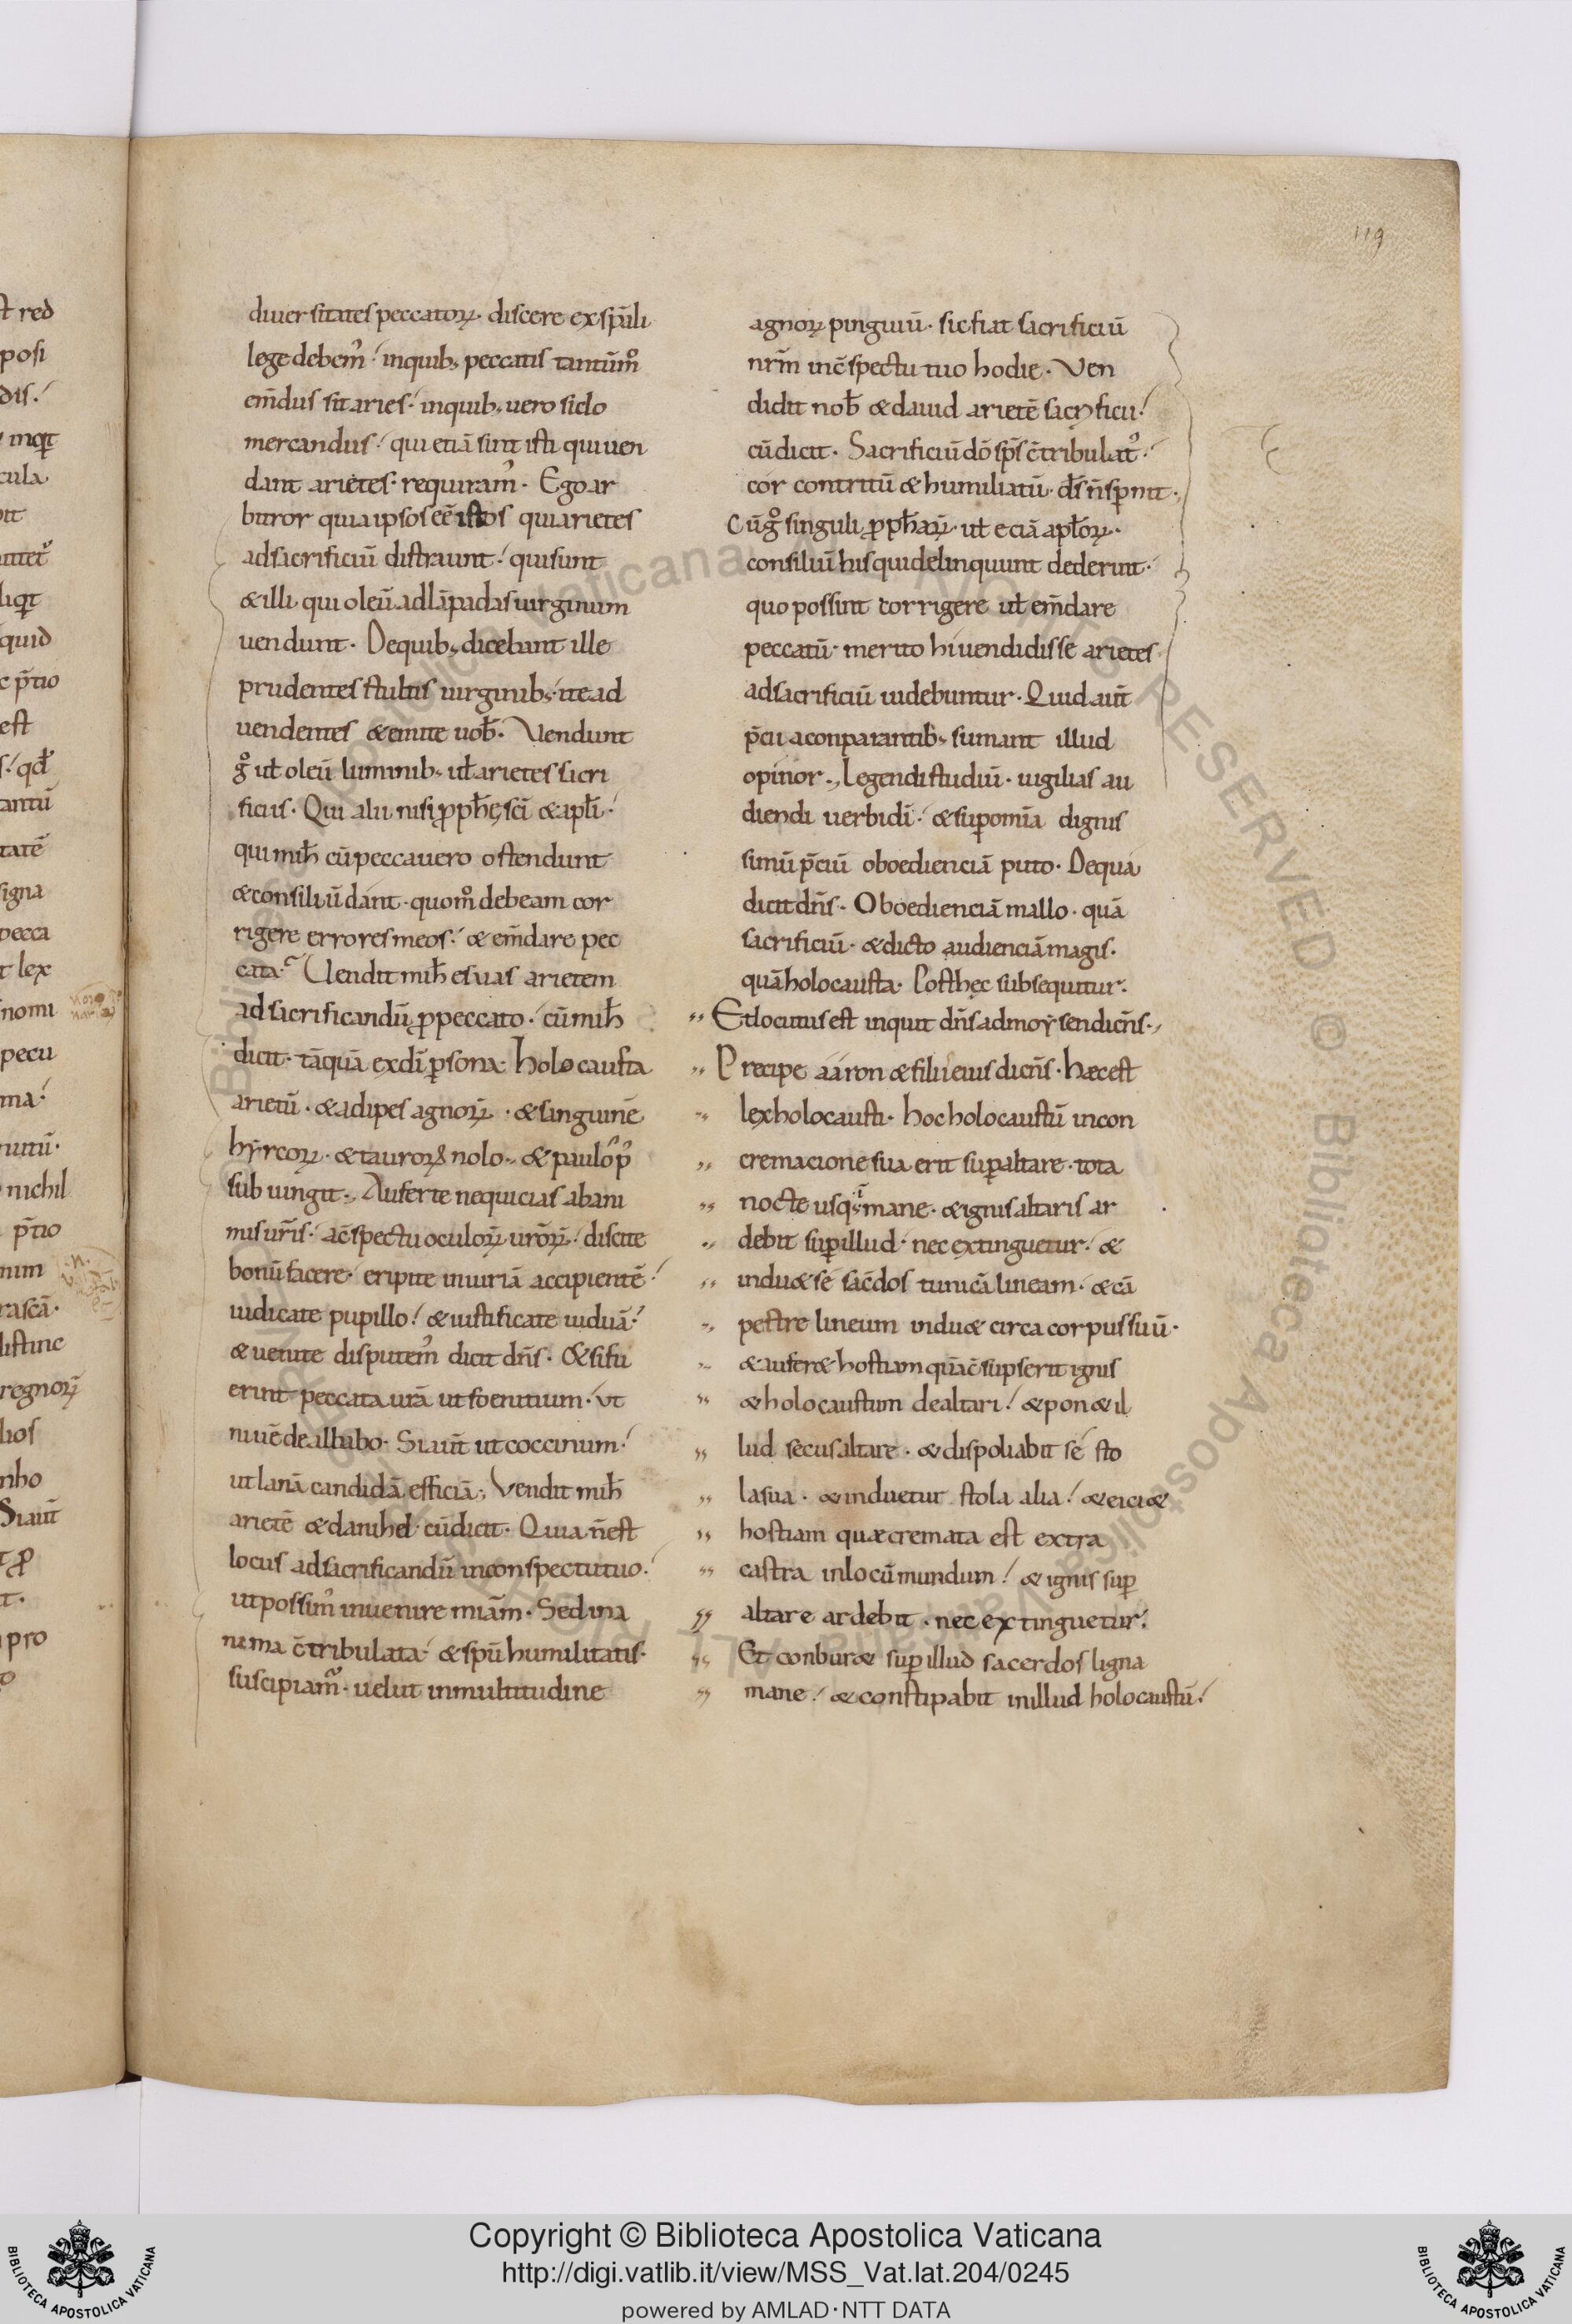 119
diuersitates peccatoꝝ. discere ex sp̄ali
lege debem᷒. inquib; peccatis tantūm°
em̄dus sit aries. inquib; uero siclo
mercandus. qui etiā sint isti qui uen
dant arietes. requiram᷒. Ego ar
bitror quia ipsos eē istos qui arietes
ad sacrificiū distraunt. qui sunt
& illi qui oleū ad lāpadas uirginum
uendunt. De quib; dicebant ille
prudentes stultis uirginib; ite ad
uendentes & emite uoƀ. Vendunt
g° uł oleū luminib; uł arietes sacri
ficiis. Qui alii nisi ꝓpħę sc̄i & apłi.
qui miħ cū peccauero ostendunt
& consiliū dant. quom° debeam cor
rigere errores meos. & em̄dare pec
cata. Uendit miħ esaias arietem
ad sacrificandū ꝓ peccato. cū miħ
dicit. tāquā ex dī ꝑsona. holocausta
arietū. & adipes agnoꝝ. & sanguinē
hyrcoꝝ. & tauroꝝ nolo. & paulo p᷒
subiungit. Auferte nequicias ab ani
mis ur̄is. a c̄spectu oculoꝝ ur̄oꝝ. discite
bonū facere. eripite iniuriā accipientē.
iudicate pupillo. & iustificate uiduā.
& uenite disputem᷒ dicit dn̄s. & si fu
erint peccata ur̄a ut foenitium. ut
niuē dealbabo. Si aut̄ ut coccinum.
ut lanā candidā efficiā. Vendit miħ
arietē & danihel. cū dicit. Quia n̄ est
locus ad sacrificandū in conspectu tuo.
ut possim᷒ inuenire mīam. Sed in a
nima c̄tribulata. & spū humilitatis.
suscipiam᷒. uelut in multitudine
agnoꝝ pinguiū. sic fiat sacrificiū
nr̄m in c̄spectu tuo hodie. Ven
didit noƀ & dauid arietē sacrificii.
cū dicit. Sacrificiū dō sp̄s c̄tribulat᷒.
cor contritū & humiliatū. d̄s n̄ spernit.
Cū g° singuli ꝓpħaꝝ. uł eciā apłoꝝ.
consiliū his qui delinquunt dederint.
quo possint corrigere uł em̄dare
peccatū. merito hi uendidisse arietes
ad sacrificiū uidebuntur. Quid aut̄
p̄cii a conparantib; sumant illud
opinor. Legendi studiū. uigilias au
diendi uerbi dī. & suꝑ om̄ia dignis
simū p̄ciū oboedienciā puto. De qua
dicit dn̄s. Oboedienciā mallo. quā
sacrificiū. & dicto audienciā magis.
quā holocausta. Post hęc subsequitur.
Et locutus est inquit dn̄s ad moysen dicn̄s.
Precipe aaron & filii eius dicn̄s. hæc est
lex holocausti. hoc holocaustū in con
cremacione sua erit suꝑ altare. tota
nocte usq; ī mane. & ignis altaris ar
debit suꝑ illud. nec extinguetur. &
indu& se sac̄dos tunicā lineam. & cā
pestre lineum indu& circa corpus suū.
& aufer& hostiam quā c̄supserit ignis
& holocaustum de altari. & pon& il
lud secus altare. & dispoliabit se sto
la sua. & induetur stola alia. & eici&
hostiam quæ cremata est extra
castra in locū mundum. & ignis suꝑ
altare ardebit. nec extinguetur.
Et conbur& suꝑ illud sacerdos ligna
mane. & constipabit in illud holocaustū.
Copyright © Biblioteca Apostolica Vaticana
http://digi.vatlib.it/view/MSS_Vat.lat.204/0245
powered by AMLAD·NTT DATA
BIBLIOTECA APOSTOLICA VATICANA
BIBLIOTECA APOSTOLICA VATICANA